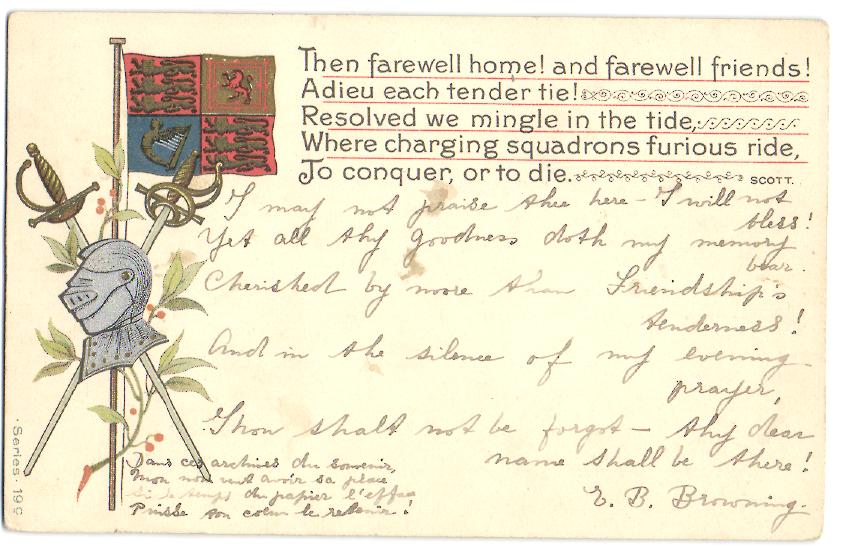 Then farewell home! and farewell friends!
Adieu each tender tie!
Resolved we mingle in the tide,
Where charging squadrons furious ride,
To conquer, or to die.
SCOTT.
I may not praise thee here – I will not
bless!
Yet all thy goodness doth my memory
bear.
Cherished by more than Friendship's
tenderness!
And in the silence of my evening
prayer,
Thou shalt not be forgot – thy dear
name shall be there!
E. B. Browning.
Dans ces archives du souvenir,
Mon nom veut avoir sa place
Si le temps du papier l'efface
Puisse ton coeur le retenir!
Series. 19